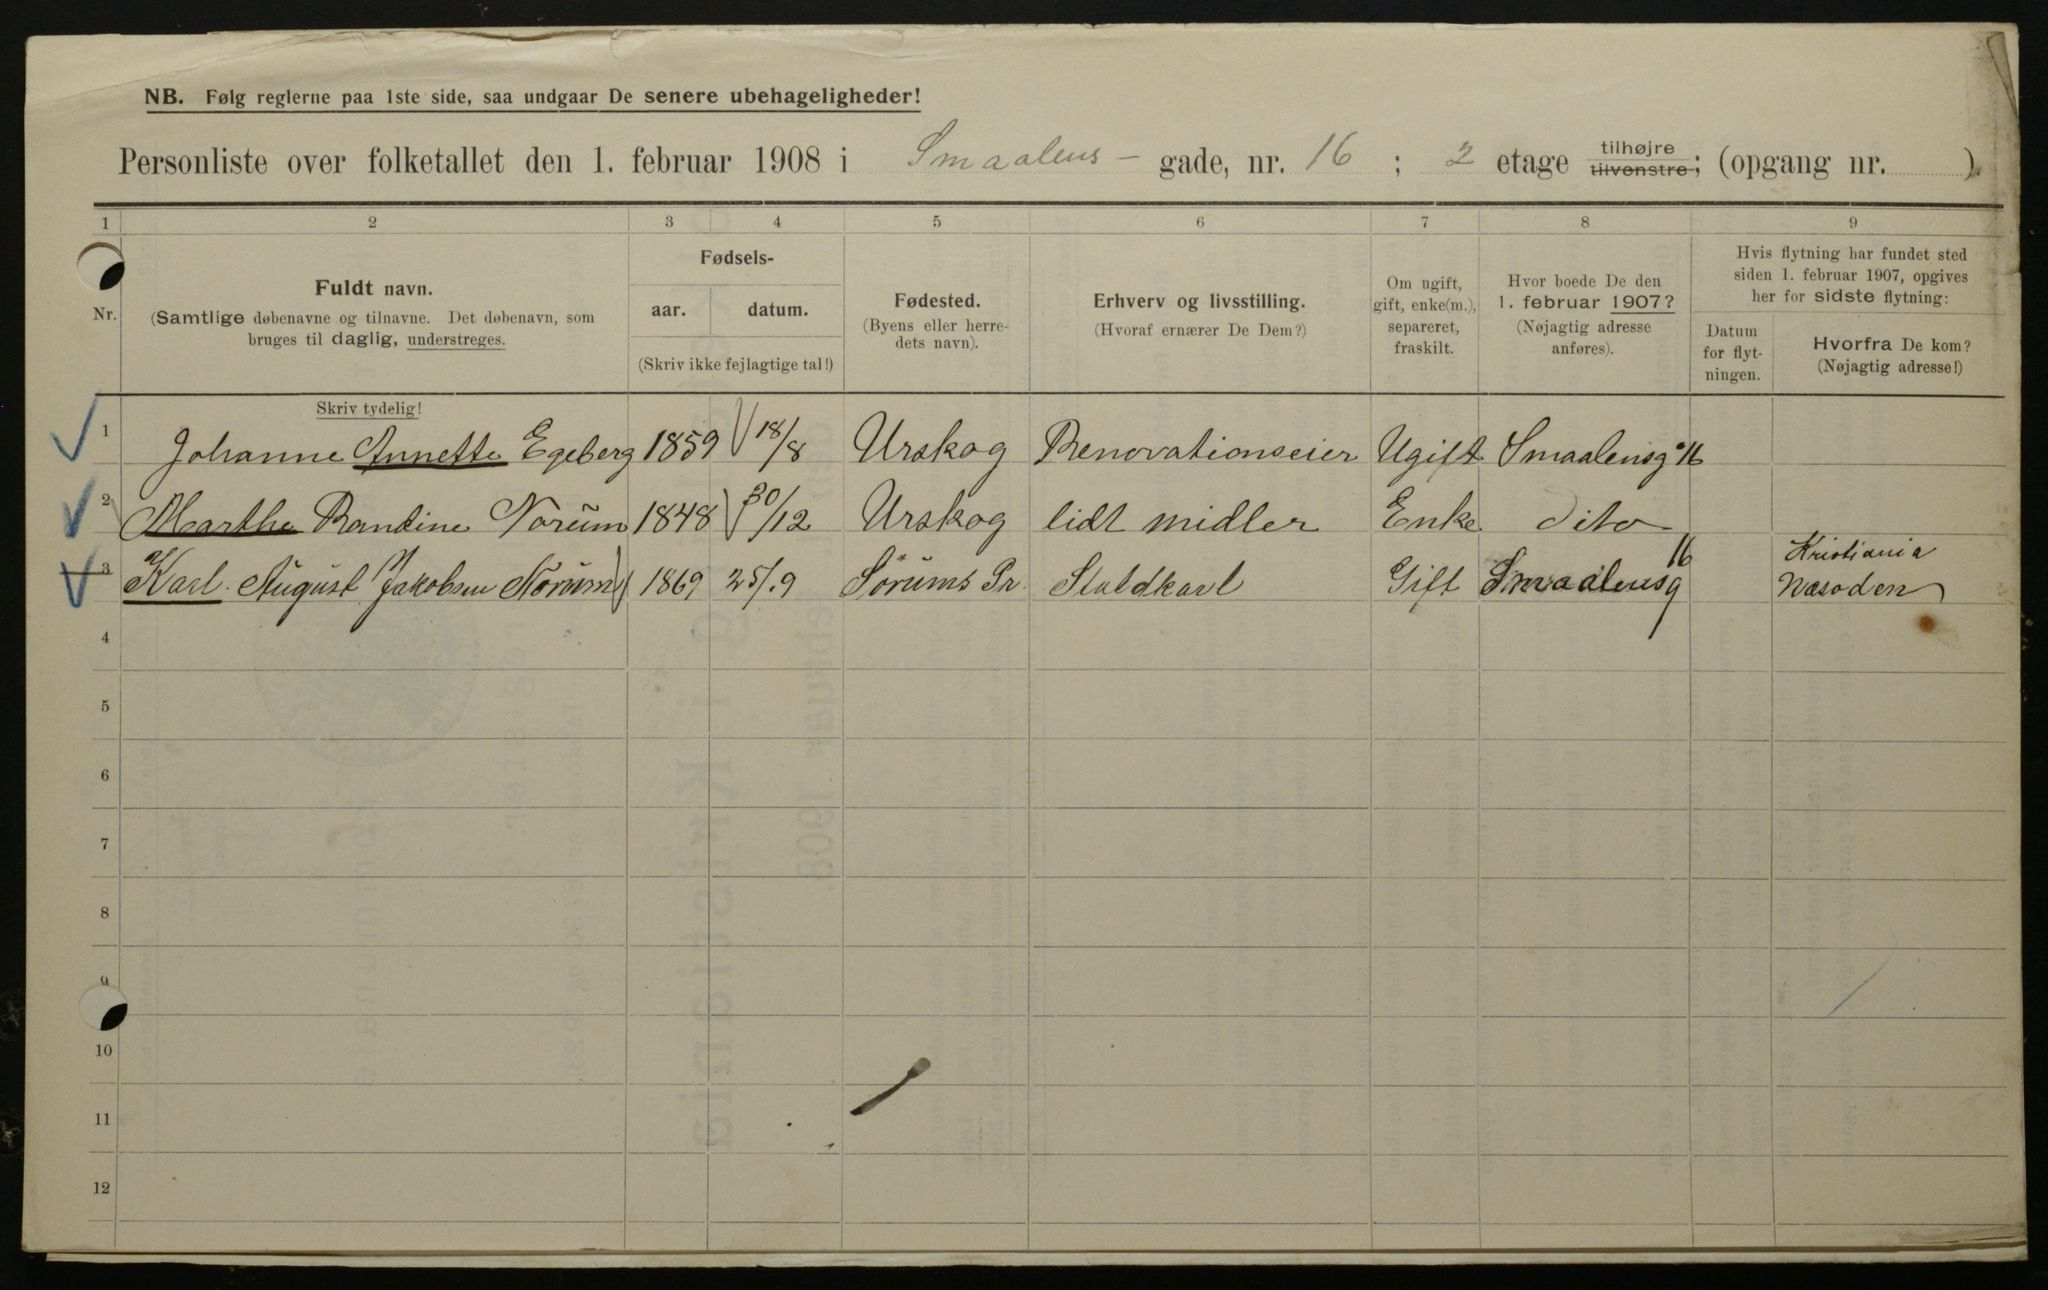 NB. Følg reglerne paa 1ste side, saa undgaar De senere ubehageligheder!
Personliste over folketallet den 1. februar 1908 i Smaalens - gade, nr. 16 ; 2 etage tilhøjre tilvenstre; (opgang nr. ).
1 2 3 4 5 6 7 8 9
Nr.
Fuldt navn.
(Samtlige døbenavne og tilnavne. Det døbenavn, som
bruges til daglig, understreges.
Skriv tydelig!
Fødsels-
aar. datum.
(Skriv ikke fejlagtige tal!)
Fødested.
(Byens eller herre-
dets navn).
Erhverv og livsstilling.
(Hvoraf ernærer De Dem?)
Om ugift,
gift, enke(m.),
separeret,
fraskilt.
Hvor boede De den
1. februar 1907?
(Nøjagtig adresse
anføres).
Hvis flytning har fundet sted
siden 1. februar 1907, opgives
her for sidste flytning:
Datum
for flyt-
ningen.
Hvorfra De kom?
(Nøjagtig adresse!)
1 Johanne Annette Egeberg 1859 18/8 Urskog Renovationseier Ugift Smaalensg 16
2 Marthe Randine Norum 1848 30/12 Urskog lidt midler Enke dito
3 Karl August Jakobsen Norum 1869 25/9 Sørums Pr. Staldkarl Gift Smaalensg 16 Kristiania
Næsodden
4
5
6
7
8
9
10
11
12